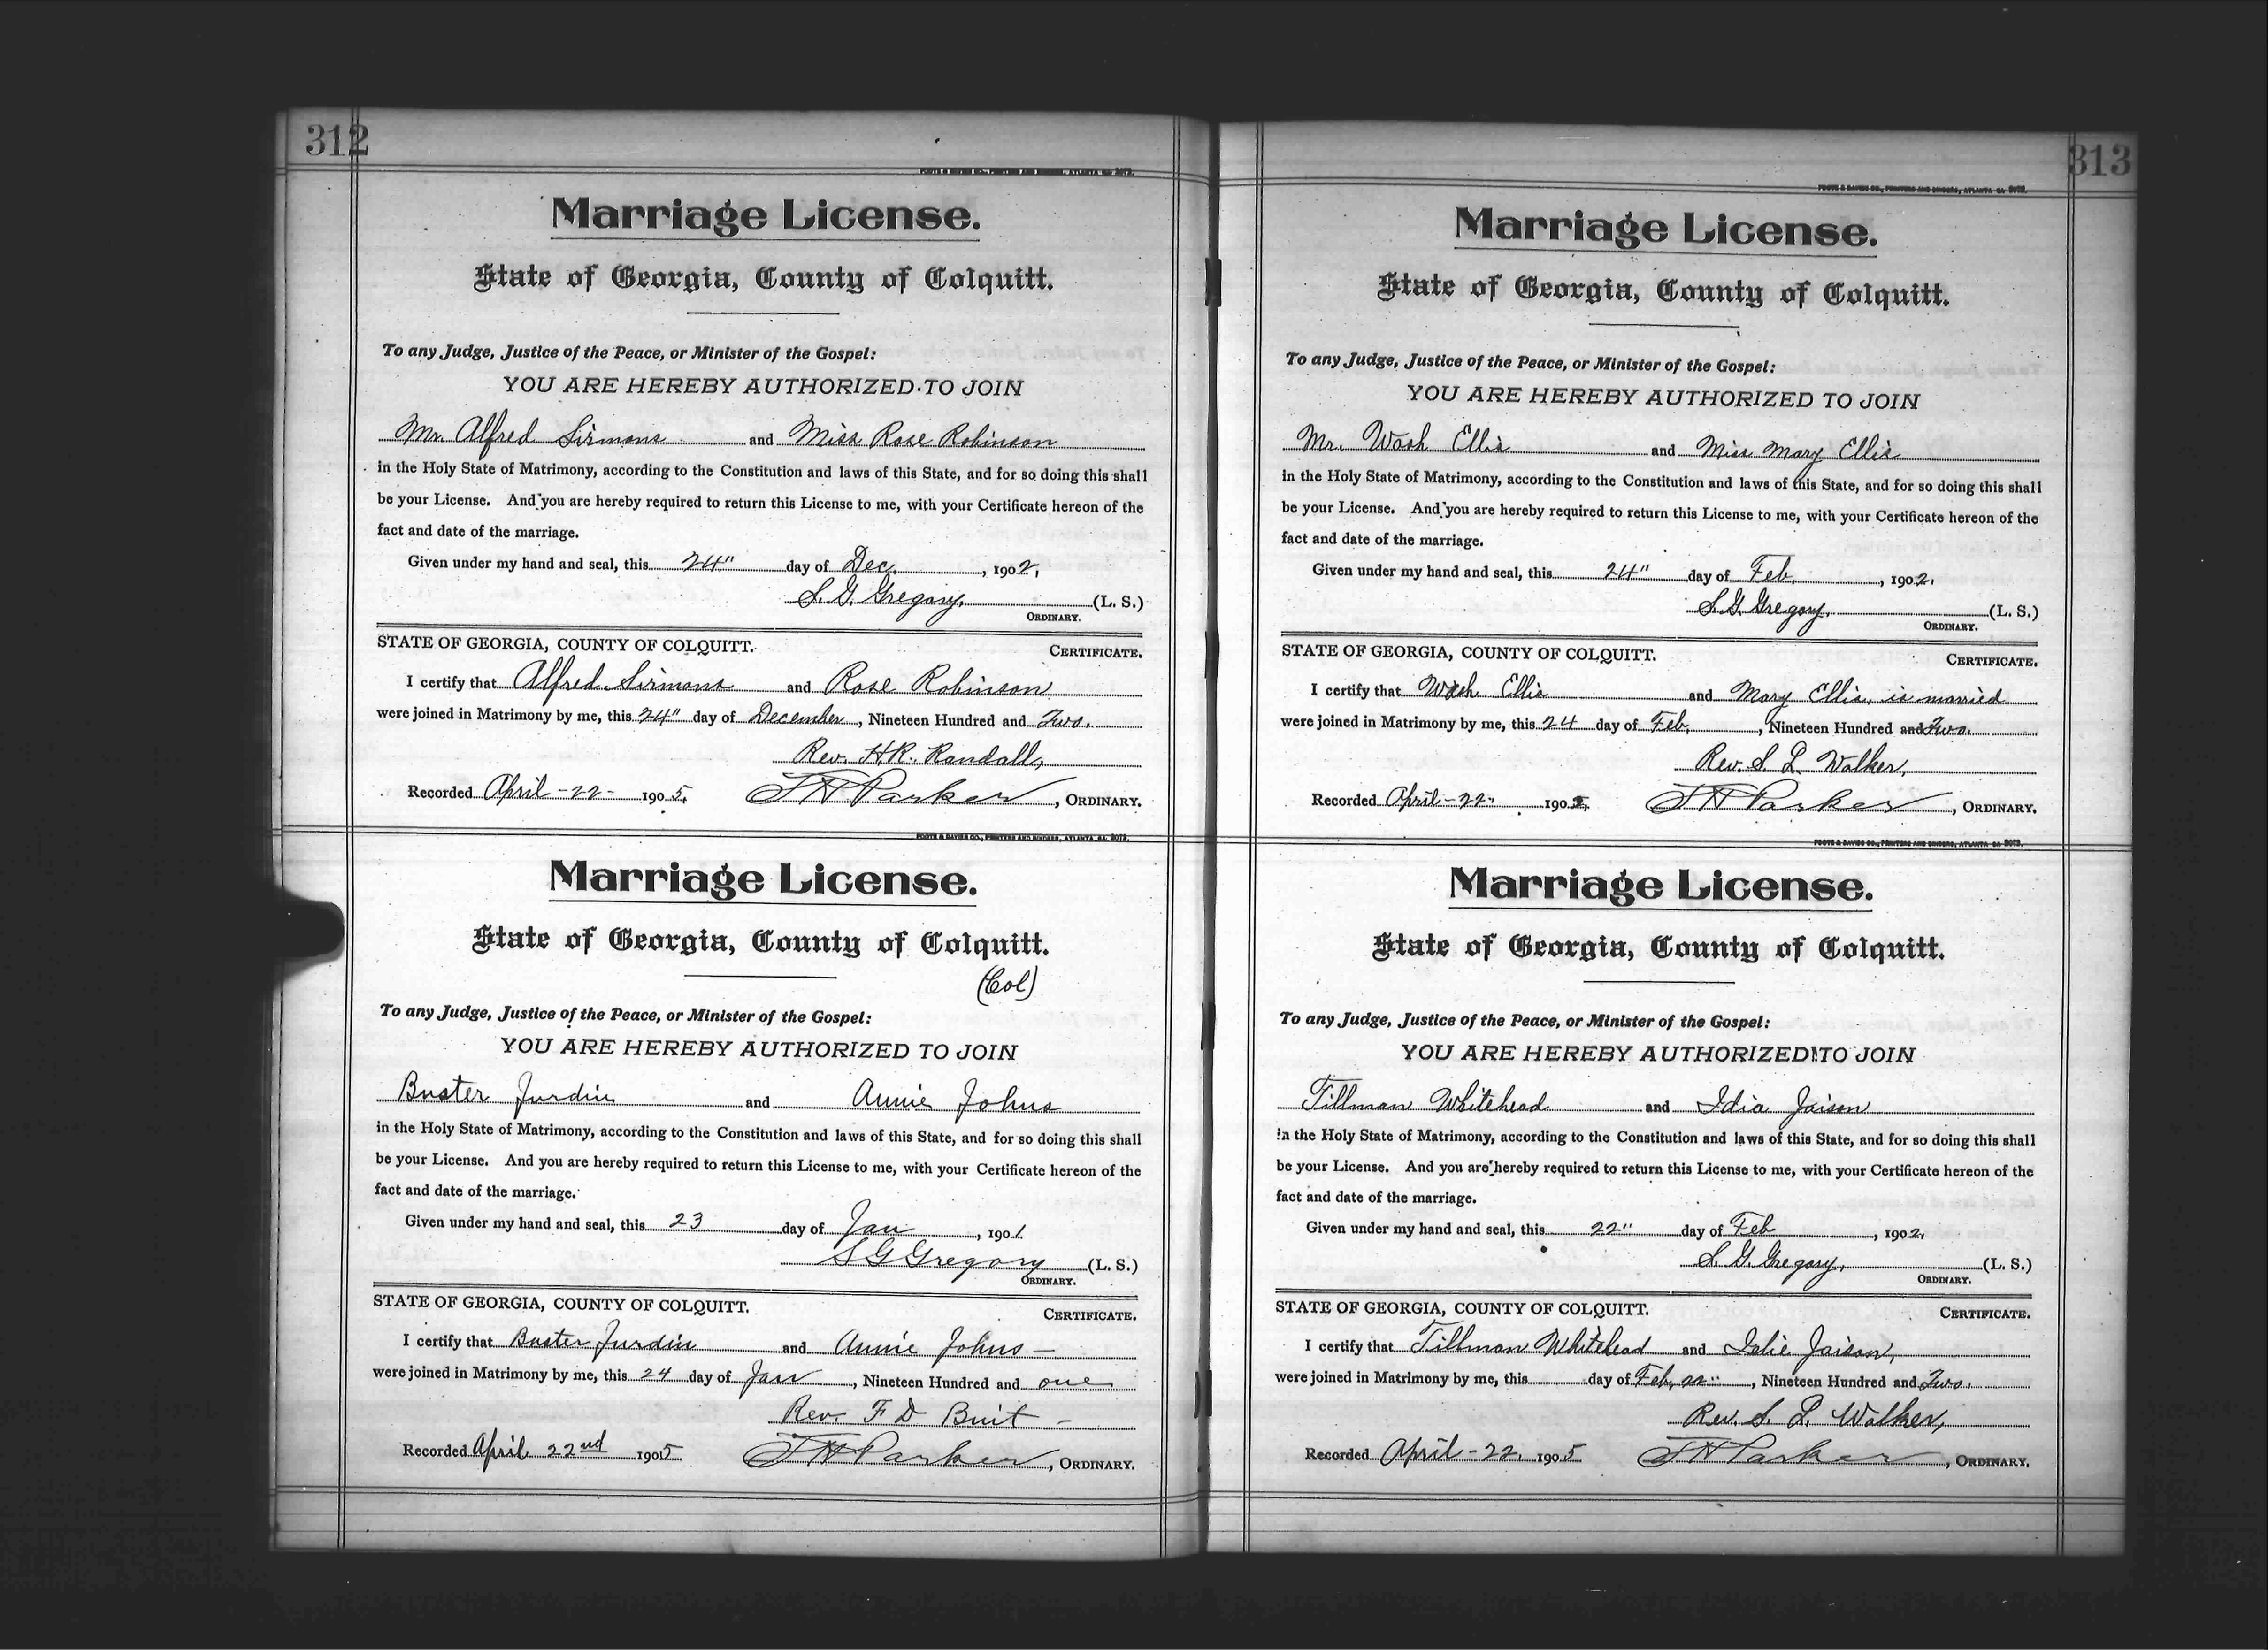 312
FOOTE & DAVIES CO., PRINTERS AND BINDERS, ATLANTA, GA. 2072.
Marriage License.
State of Georgia, County of Colquitt.
To any Judge, Justice of the Peace, or Minister of the Gospel:
YOU ARE HEREBY AUTHORIZED TO JOIN
Mr. Alfred Sirmons and Miss Rose Robinson
in the Holy State of Matrimony, according to the Constitution and laws of this State, and for so doing this shall
be your License. And you are hereby required to return this License to me, with your Certificate hereon of the
fact and date of the marriage.
Given under my hand and seal, this 24" day of Dec. , 1902,
S. G. Gregory, (L. S.)
ORDINARY.
STATE OF GEORGIA, COUNTY OF COLQUITT.
CERTIFICATE.
I certify that Alfred Sirmons and Rose Robinson
were joined in Matrimony by me, this 24" day of December, Nineteen Hundred and Two.
Rev. H.R. Randall,
Recorded April -22- 1905, J H Parker, ORDINARY.
FOOTE & DAVIES CO., PRINTERS AND BINDERS, ATLANTA, GA. 2072.
Marriage License.
State of Georgia, County of Colquitt.
(Col)
To any Judge, Justice of the Peace, or Minister of the Gospel:
YOU ARE HEREBY AUTHORIZED TO JOIN
Buster Jurdin and Annie Johns
in the Holy State of Matrimony, according to the Constitution and laws of this State, and for so doing this shall
be your License. And you are hereby required to return this License to me, with your Certificate hereon of the
fact and date of the marriage.
Given under my hand and seal, this 23 day of Jan , 1901
S G Gregory (L. S.)
ORDINARY.
STATE OF GEORGIA, COUNTY OF COLQUITT.
CERTIFICATE.
I certify that Buster Jurdin and Annie Johns -
were joined in Matrimony by me, this 24 day of Jan , Nineteen Hundred and one
Rev. F D -
Recorded April 22nd 1905 J H Parker, ORDINARY.
313
FOOTE & DAVIES CO., PRINTERS AND BINDERS, ATLANTA, GA. 2072.
Marriage License.
State of Georgia, County of Colquitt.
To any Judge, Justice of the Peace, or Minister of the Gospel:
YOU ARE HEREBY AUTHORIZED TO JOIN
Mr. Wash Ellis and Miss Mary Ellis
in the Holy State of Matrimony, according to the Constitution and laws of this State, and for so doing this shall
be your License. And you are hereby required to return this License to me, with your Certificate hereon of the
fact and date of the marriage.
Given under my hand and seal, this 24" day of Feb. , 1902.
S. G. Gregory, (L. S.)
ORDINARY.
STATE OF GEORGIA, COUNTY OF COLQUITT.
CERTIFICATE.
I certify that Wash Ellis and Mary Ellis, is married
were joined in Matrimony by me, this 24 day of Feb. , Nineteen Hundred and Two.
Rev. S. L. Walker,
Recorded April -22, 1905, J H Parker, ORDINARY.
FOOTE & DAVIES CO., PRINTERS AND BINDERS, ATLANTA, GA. 2072.
Marriage License.
State of Georgia, County of Colquitt.
To any Judge, Justice of the Peace, or Minister of the Gospel:
YOU ARE HEREBY AUTHORIZED TO JOIN
Tillman Whitehead and Idia Jaison
in the Holy State of Matrimony, according to the Constitution and laws of this State, and for so doing this shall
be your License. And you are hereby required to return this License to me, with your Certificate hereon of the
fact and date of the marriage.
Given under my hand and seal, this 22" day of Feb , 1902,
S. G. Gregory, (L. S.)
ORDINARY.
STATE OF GEORGIA, COUNTY OF COLQUITT.
CERTIFICATE.
I certify that Tillman Whitehead and Jaison,
were joined in Matrimony by me, this day of Feb, 22" , Nineteen Hundred and Two.
Rev. S. L. Walker,
Recorded April -22, 1905 J H Parker, ORDINARY.